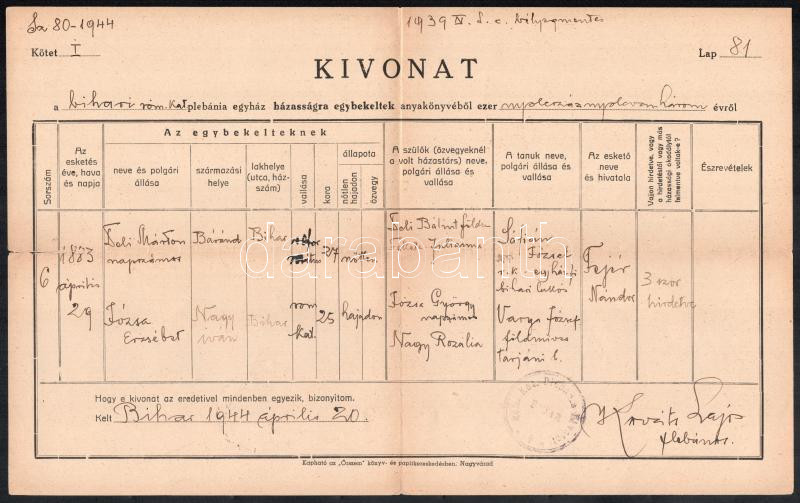 Sz 80-1944
1939 IV. §. c. bélyegmentes
Kötet I
Lap 81
KIVONAT
a bihari róm. kat plebánia egyház házasságra egybekeltek anyakönyvéből ezer nyolcszáznyolcvanhárom évről
Sorszám
Az esketés éve, hava és napja
Az egybekelteknek
neve és polgári állása
származási helye
lakhelye (utca, házszám)
vallása
kora
állapota
nőtlen hajadon
özvegy
A szülők (özvegyeknél a volt házastárs) neve, polgári állása és vallása
A tanuk neve, polgári állása és vallása
Az eskető neve és hivatala
Vajjon hirdetve, vagy a hirdetéstől vagy más házassági akadálytól felmentve voltak-e?
Észrevételek
6
1883 április 29
Márton
napszámos
Báránd
Bihar
34
Bálint
Julianna
József
egyház
bihari
Fejér
Nándor
3 szor
hirdetve
Józsa
Erzsébet
Nagy
iván
Bihar
rom
kat.
25
hajadon
Józsa György
napszámos
Nagy Rozália
Varga József
földmives
tarjáni l.
darabanth
Hogy e kivonat az eredetivel mindenben egyezik, bizonyitom.
Kelt Bihar 1944 április 20.
Kováts Lajos
plebános.
Kapható az „Összem" könyv- és papirkereskedésben. Nagyvárad